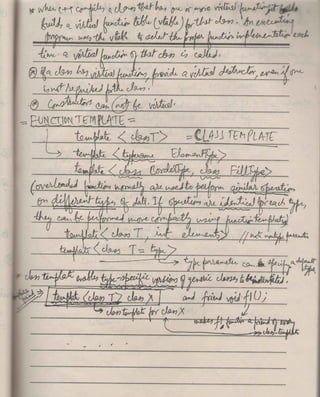 * when c++ compiles a class that has one or more virtual functions, it
builds a virtual function table (vtable) for that class. An executing
program uses the vtable to select the proper function implementation each
time a virtual function of that class is called.
If a class has virtual functions, provide a virtual destructor, even if one
is not required for the class.
Constructors can not be virtual.
= FUNCTION TEMPLATE =
template < class T> = CLASS TEMPLATE
template < typename ElementType>
template < class BorderType, class FillType>
Overloaded function normally are used to perform similar operation
on different types of data. If operations are identical for each type,
they can be performed more compactly using function templates
template < class T, int elements> // non type parameter
template < class T = type >
type parameter can specify a default type
* class template enables type-specific versions of generic classes to be
template <class T> class X and friend void f1();
class template for class X
makes f1 function a friend of every
class template